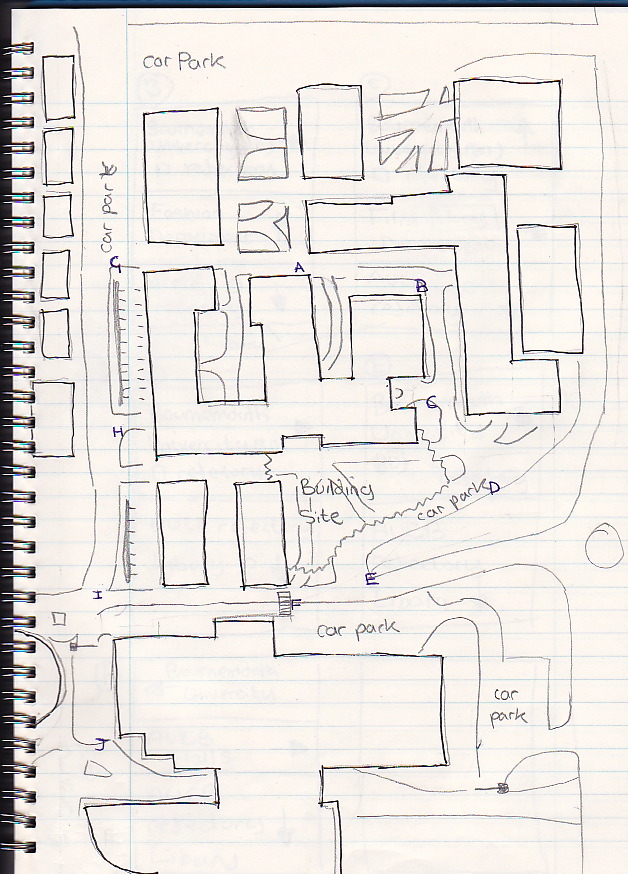 car Park
car park
G
A
B
C
H
Building
Site
car park
D
E
I
F
car park
car
park
J